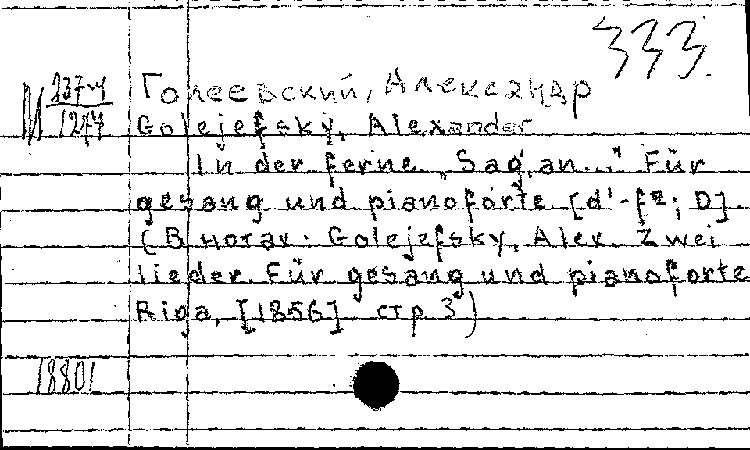 333.
М 237-4
1244
Голеевский, Александр
Golejefsky, Alexander
In der ferne „Sag, an..." Für
gesang und pianoforte [d'-f²; D].
(В нотах: Golejefsky, Alex. Zwei
lieder. Für gesang und pianoforte
Riga, [1856] стр 3)
18801